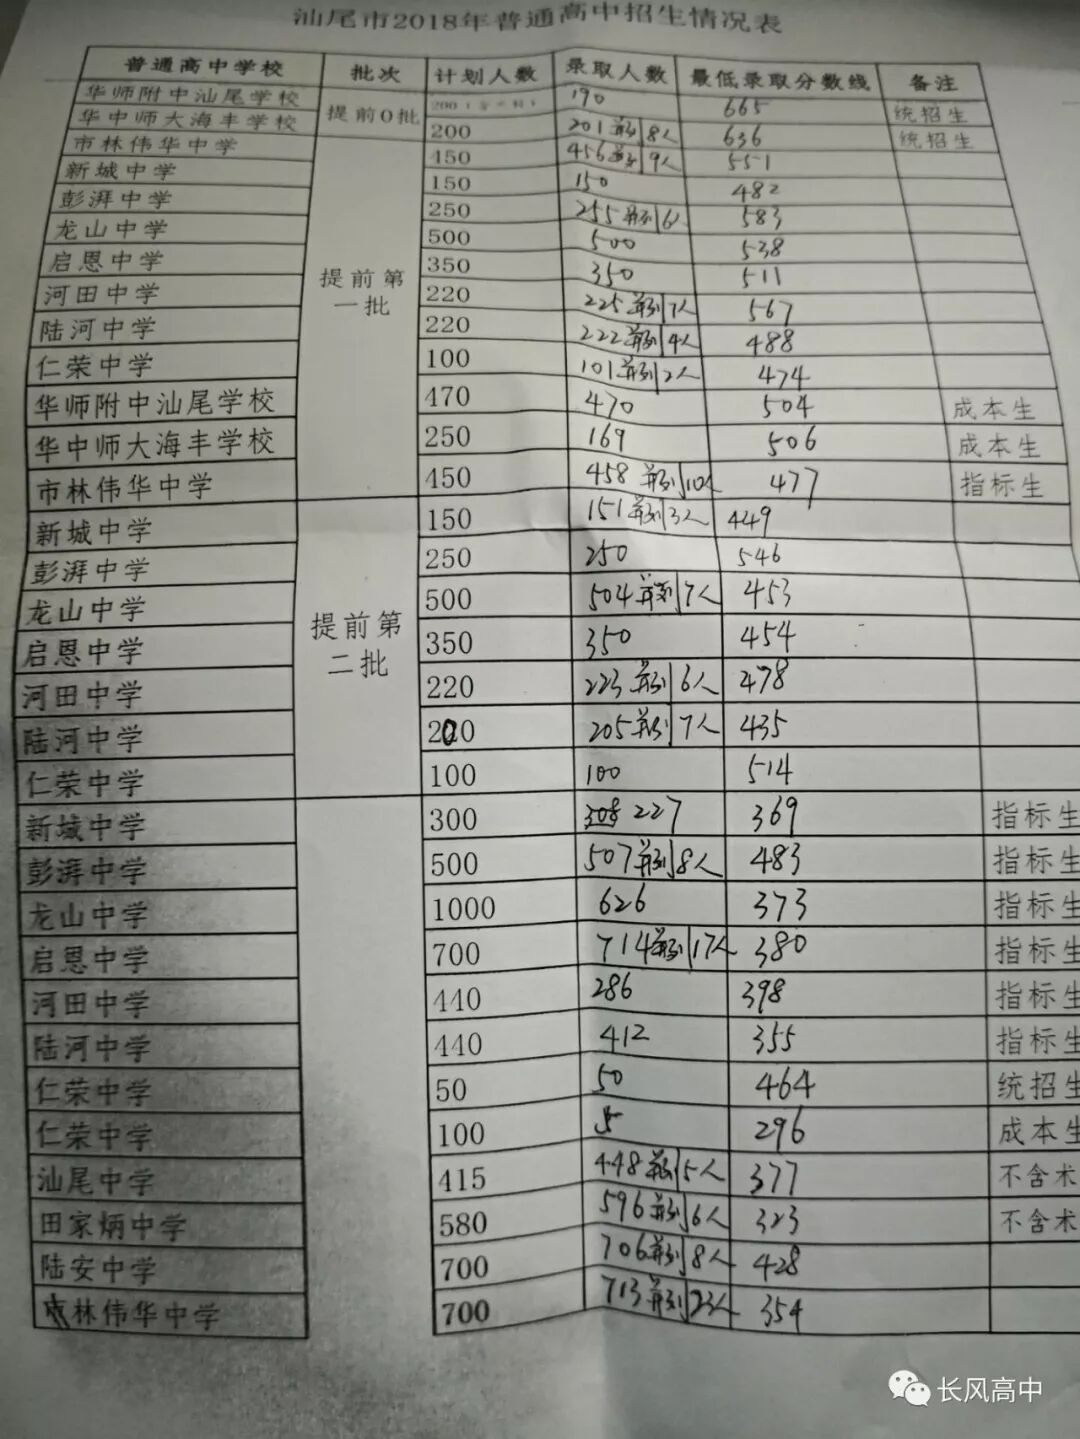 汕尾市2018年普通高中招生情况表
普通高中学校 批次 计划人数 录取人数 最低录取分数线 备注
华师附中汕尾学校 提前0批 190 665 统招生
华中师大海丰学校 200 201 并列8人 636 统招生
市林伟华中学 提前第一批 450 456 并列9人 551
新城中学 150 150 482
彭湃中学 250 255 并列6 583
龙山中学 500 500 538
启恩中学 350 350 511
河田中学 220 225 并列7人 567
陆河中学 220 222 并列4人 488
仁荣中学 100 101 并列2人 474
华师附中汕尾学校 470 470 504 成本生
华中师大海丰学校 250 169 506 成本生
市林伟华中学 450 458 并列10人 477 指标生
新城中学 提前第二批 150 151 并列3人 449
彭湃中学 250 250 546
龙山中学 500 504 并列7人 453
启恩中学 350 350 454
河田中学 220 223 并列6人 478
陆河中学 200 205 并列7人 435
仁荣中学 100 100 514
新城中学 300 227 369 指标生
彭湃中学 500 507 并列8人 483 指标生
龙山中学 1000 626 373 指标生
启恩中学 700 714 并列17人 380 指标生
河田中学 440 286 398 指标生
陆河中学 440 412 355 指标生
仁荣中学 50 50 464 统招生
仁荣中学 100 5 296 成本生
汕尾中学 415 448 并列5人 377 不含术
田家炳中学 580 596 并列6人 323 不含术
陆安中学 700 706 并列8人 428
市林伟华中学 700 713 并列23人 354
长风高中